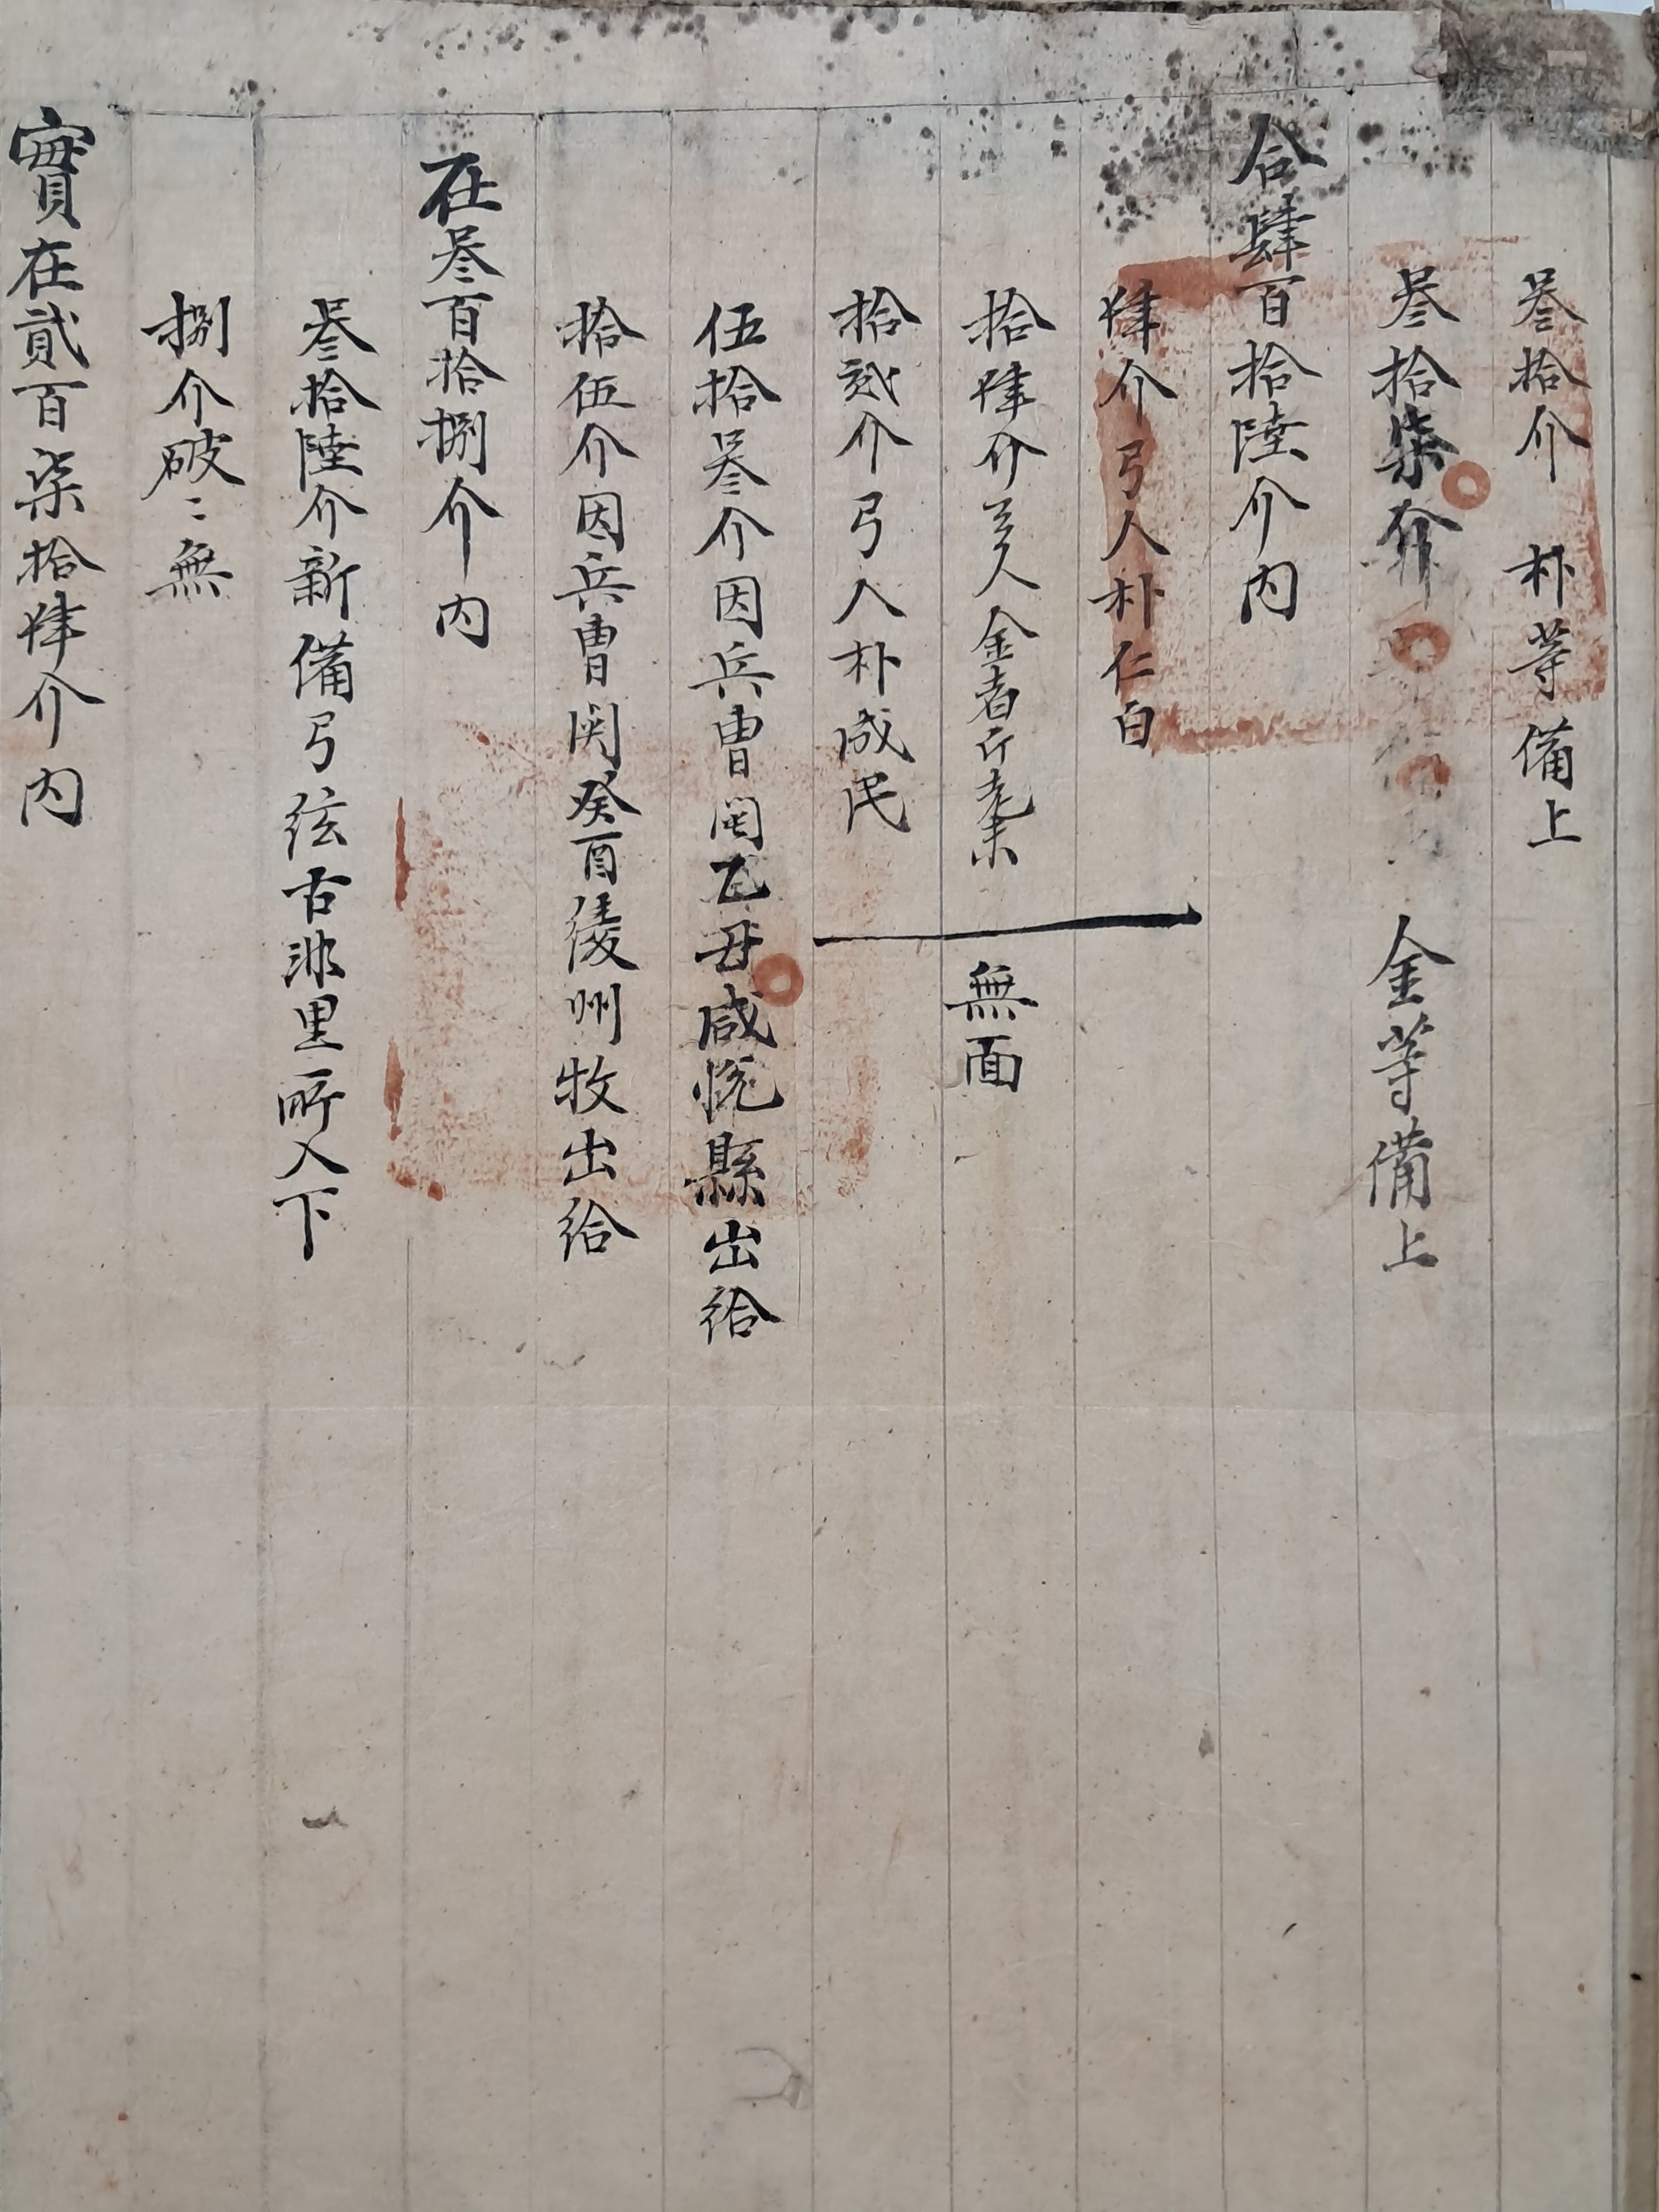 叄拾介 朴等備上
叄拾柒介 金等備上
合肆百拾陸介内
肆介弓人朴仁白
拾肆介弓人金者斤老未
拾貳介弓人朴成民
無面
伍拾叄介因兵曹関乙丑咸悅縣出給
拾伍介因兵曹関癸酉綾州牧出給
在叄百拾捌介内
叄拾陸介新備弓弦古里所入下
捌介破〻無
實在貳百柒拾肆介内